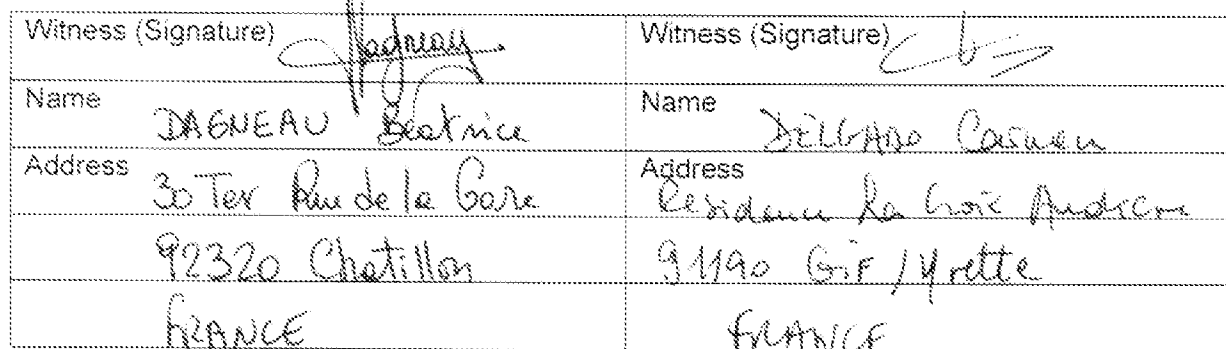 Witness (Signature) Dagneau
Name DAGNEAU Béatrice
Address 30 Ter Rue de la Gare
92320 Chatillon
FRANCE
Witness (Signature)
Name DELGADO Carmen
Address
Residence La Croix
91190 GiF / Yvette
FRANCE